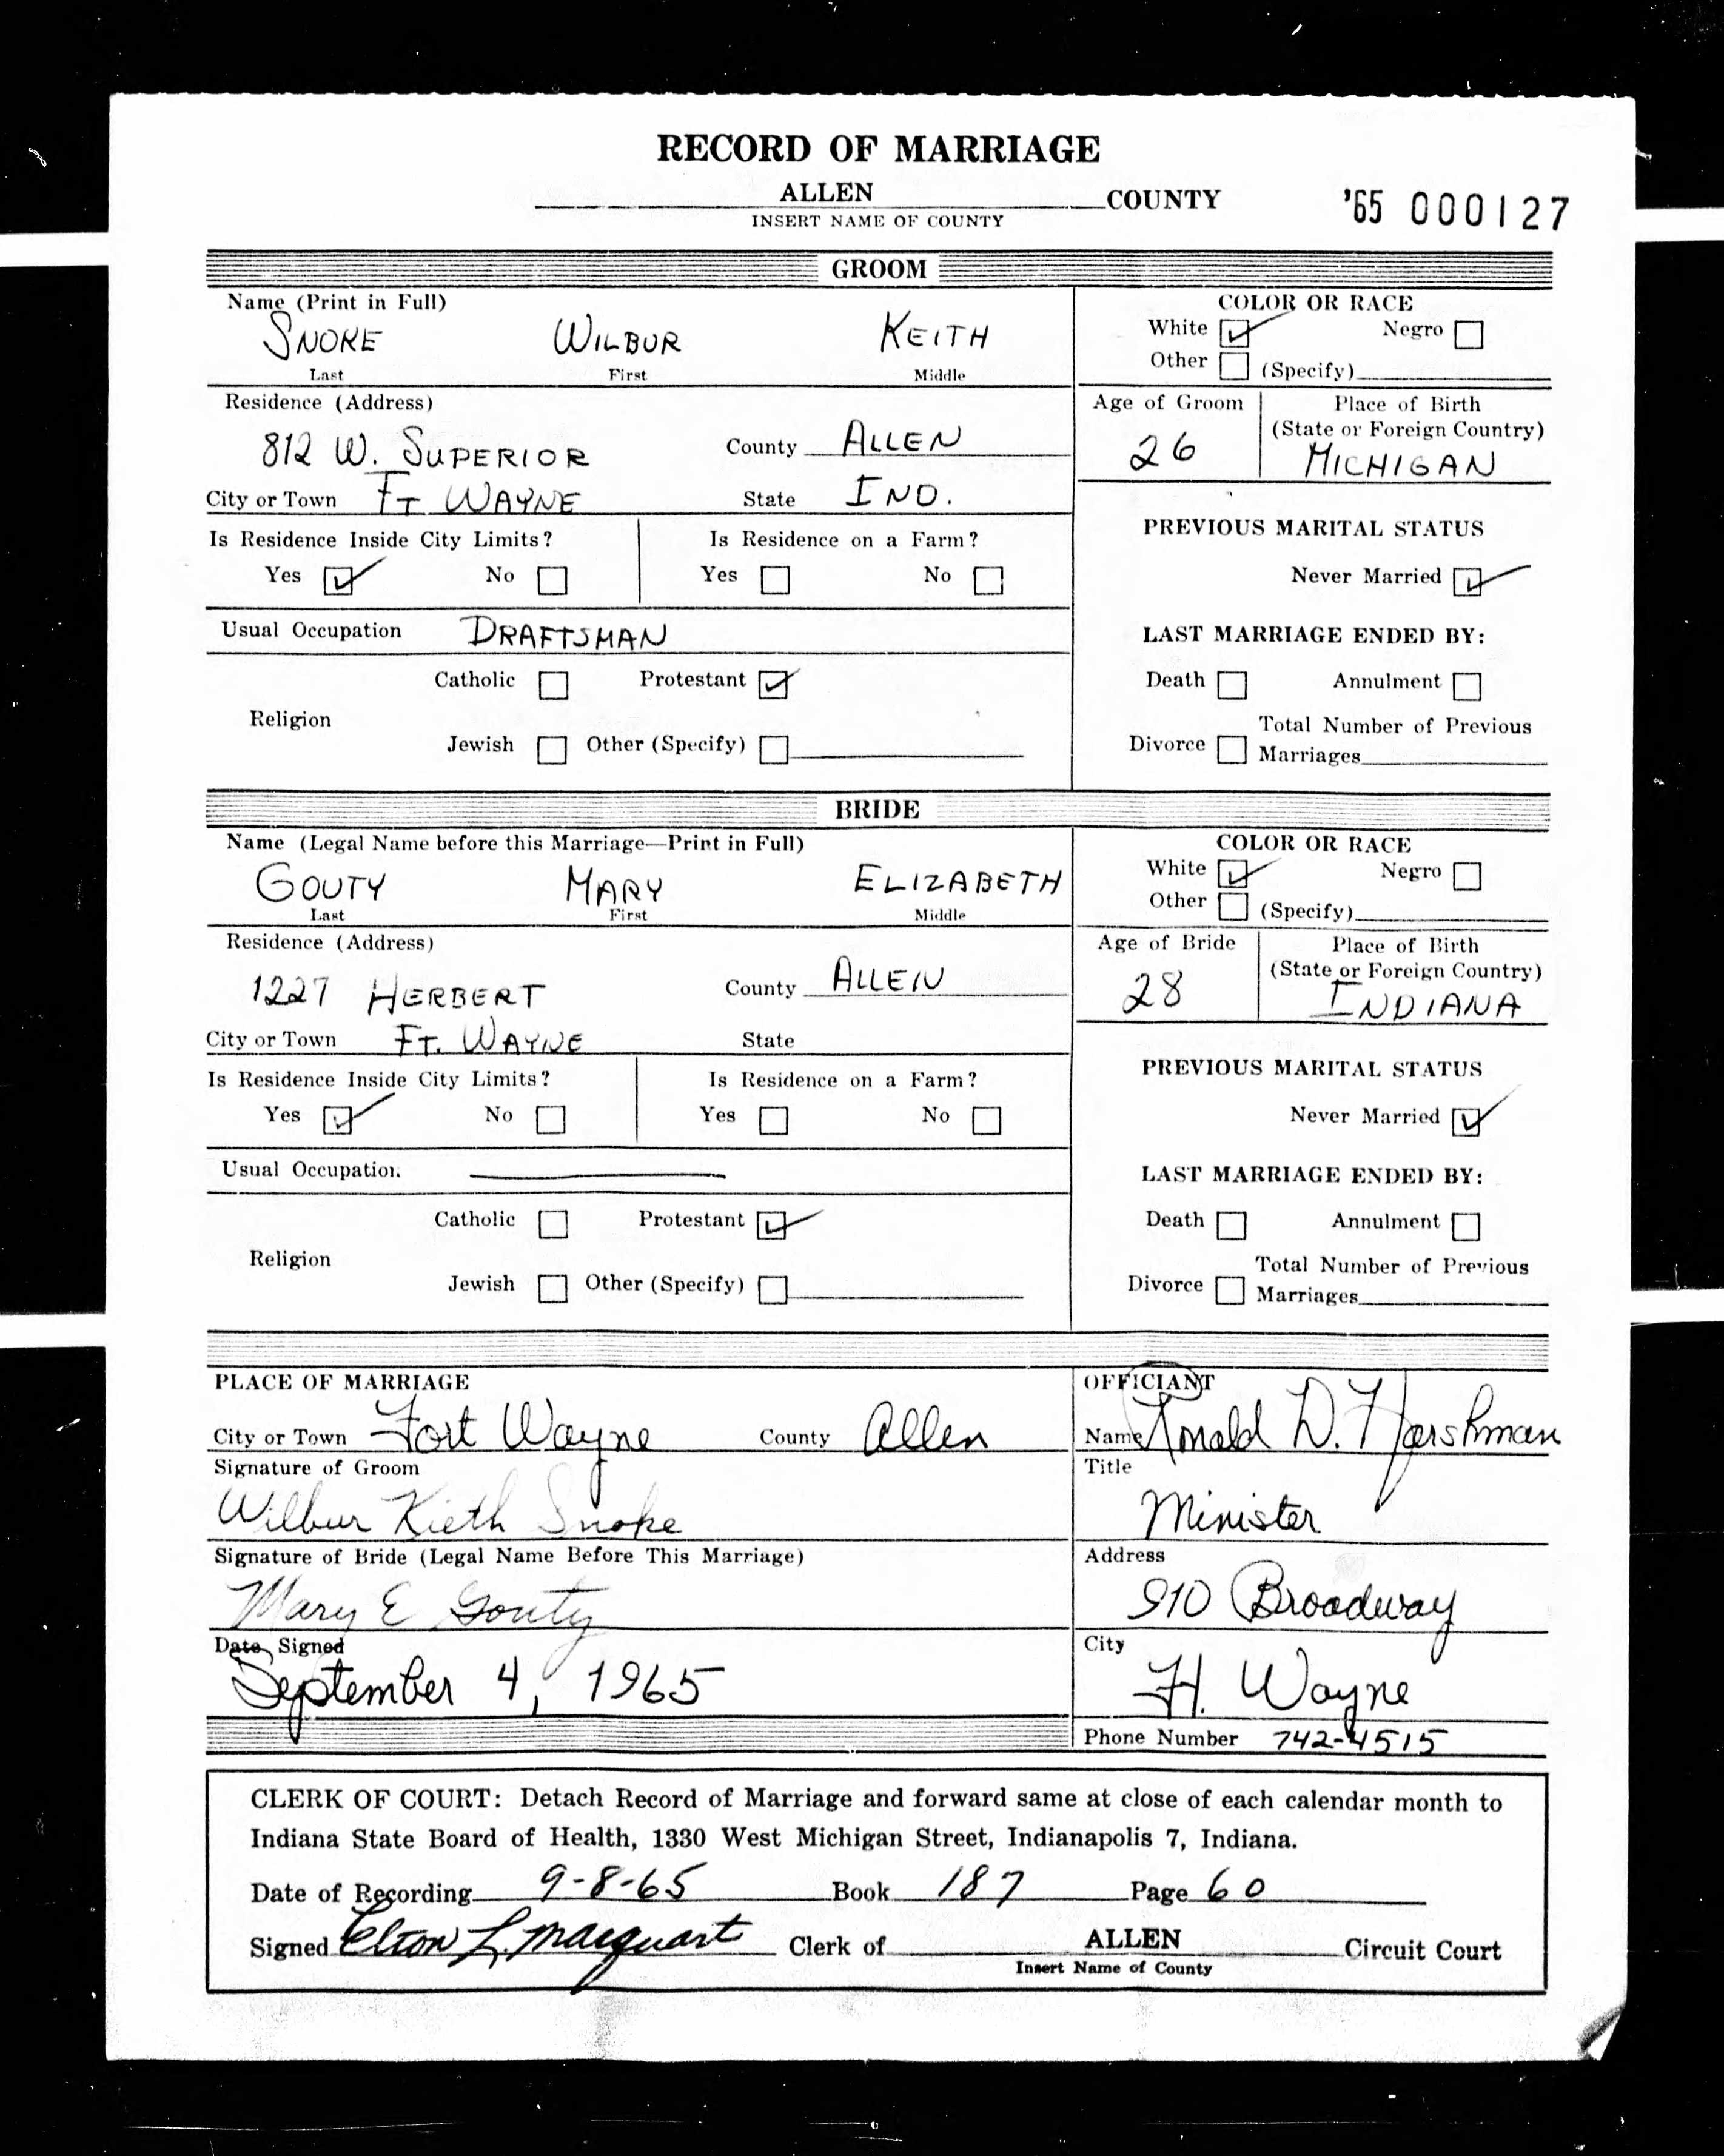 RECORD OF MARRIAGE
ALLEN COUNTY '65 000127
INSERT NAME OF COUNTY
GROOM
Name (Print in Full) COLOR OR RACE
SNOKE WILBUR KEITH White Negro
Last First Middle Other (Specify)
Residence (Address) Age of Groom Place of Birth
(State or Foreign Country)
812 W. SUPERIOR County ALLEN 26 MICHIGAN
City or Town FT WAYNE State IND.
Is Residence Inside City Limits? Is Residence on a Farm? PREVIOUS MARITAL STATUS
Yes No Yes No Never Married
Usual Occupation DRAFTSMAN LAST MARRIAGE ENDED BY:
Catholic Protestant Death Annulment
Religion Total Number of Previous
Jewish Other (Specify) Divorce Marriages
BRIDE
Name (Legal Name before this Marriage—Print in Full) COLOR OR RACE
GOUTY MARY ELIZABETH White Negro
Last First Middle Other (Specify)
Residence (Address) Age of Bride Place of Birth
(State or Foreign Country)
1227 HERBERT County ALLEN 28 INDIANA
City or Town FT. WAYNE State
Is Residence Inside City Limits? Is Residence on a Farm? PREVIOUS MARITAL STATUS
Yes No Yes No Never Married
Usual Occupation LAST MARRIAGE ENDED BY:
Catholic Protestant Death Annulment
Religion Total Number of Previous
Jewish Other (Specify) Divorce Marriages
PLACE OF MARRIAGE OFFICIANT
City or Town Fort Wayne County Allen Name Ronald D. Harshman
Signature of Groom Title
Wilbur Kieth Snoke Minister
Signature of Bride (Legal Name Before This Marriage) Address
Mary E Gouty 910 Broadway
Date Signed City
September 4, 1965 Ft. Wayne
Phone Number 742-4515
CLERK OF COURT: Detach Record of Marriage and forward same at close of each calendar month to
Indiana State Board of Health, 1330 West Michigan Street, Indianapolis 7, Indiana.
Date of Recording 9-8-65 Book 187 Page 60
Signed Elton L. Marquart Clerk of ALLEN Circuit Court
Insert Name of County